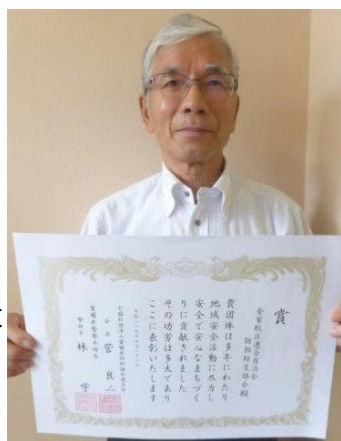 賞
金栄校区連合自治会
防犯組支部会殿
貴団体は多年にわたり
地域安全活動に尽力し
安全で安心なまちづく
りに貢献されました
その功労は多大であり
ここに表彰いたします
会長 菅良二
愛媛県警察本部長
警視長 林学